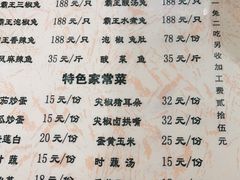 霸王三椒兔 188元/只 霸王酸汤兔 188元/只
霸王泡椒兔 188元/只 霸王水煮兔 188元/只
王香辣兔 188元/只 泡椒兔肚 78元/份
风麻辣鱼 35元/斤 酸菜鱼 35元/斤
特色家常菜
茄炒蛋 15元/份 尖椒猪耳朵 32元/份
瓜炒蛋 15元/份 尖椒卤拱嘴 32元/份
莲白 20元/份 蛋黄玉米 25元/份
时蔬 15元/份 时蔬汤 15元/份
一兔二吃另收加工费贰拾伍元